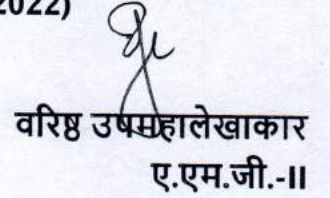 2022)
वरिष्ठ उपमहालेखाकार
ए.एम.जी.-II